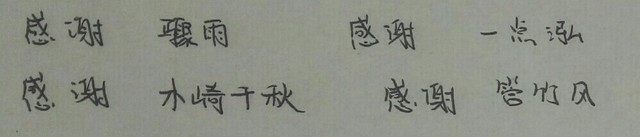 感谢 骤雨 感谢 一点泓
感谢 木崎千秋 感谢 管竹风